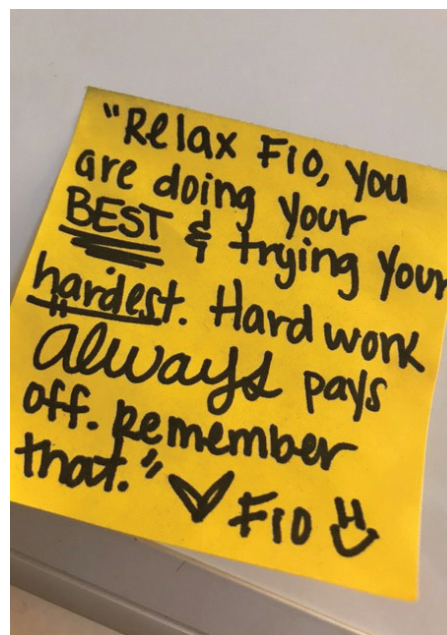 "Relax Fio, you
are doing your
BEST & trying your
hardest. Hard work
always pays
off. Remember
that." ♡ Fio